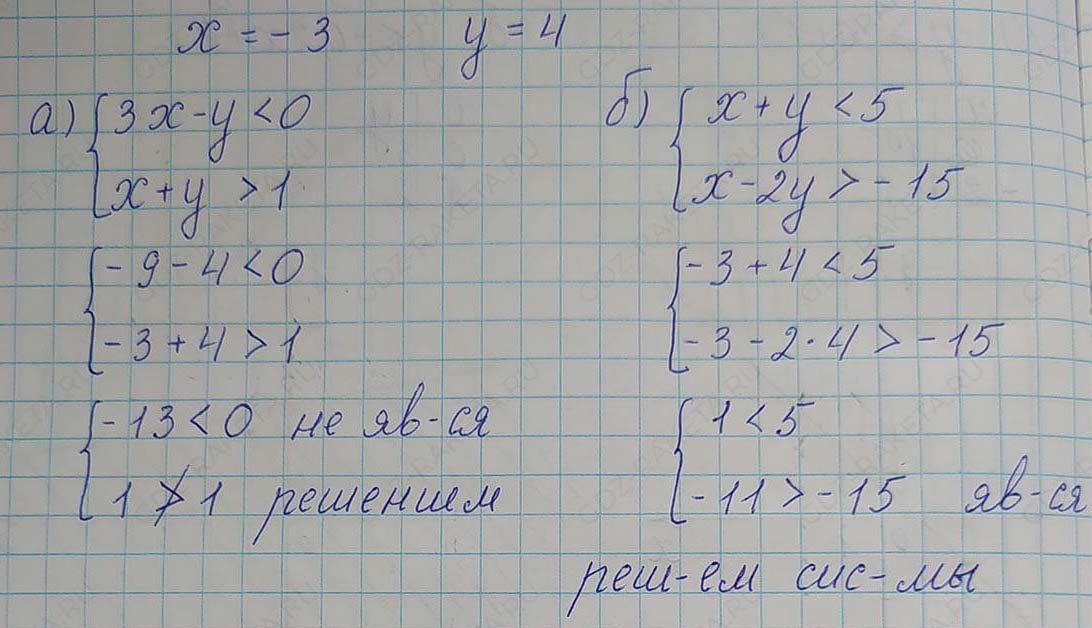 x = -3 y = 4
а) { 3x - y < 0
x + y > 1
{ -9 - 4 < 0
-3 + 4 > 1
{ -13 < 0 не яв-ся
1 ≯ 1 решением
б) { x + y < 5
x - 2y > -15
{ -3 + 4 < 5
-3 - 2 · 4 > -15
{ 1 < 5
-11 > -15 яв-ся
реш-ем сис-мы
GDZ-RAKETA.RU